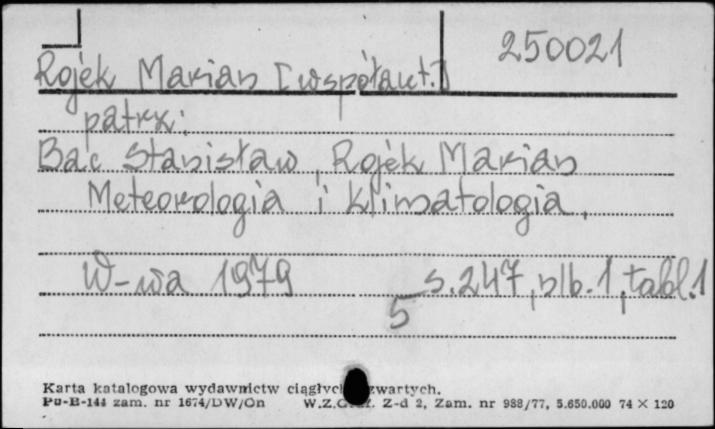 250021
Rojek Marian [współaut.]
patrz:
Bac Stanisław, Rojek Marian
Meteorologia i klimatologia.
W-wa 1979 s.247, nlb.1, tabl.1
5
Karta katalogowa wydawnictw ciągłych zwartych.
Pu-B-144 zam. nr 1674/DW/On W.Z.G. Z-d 2, Zam. nr 988/77, 5.650.000 74 × 120